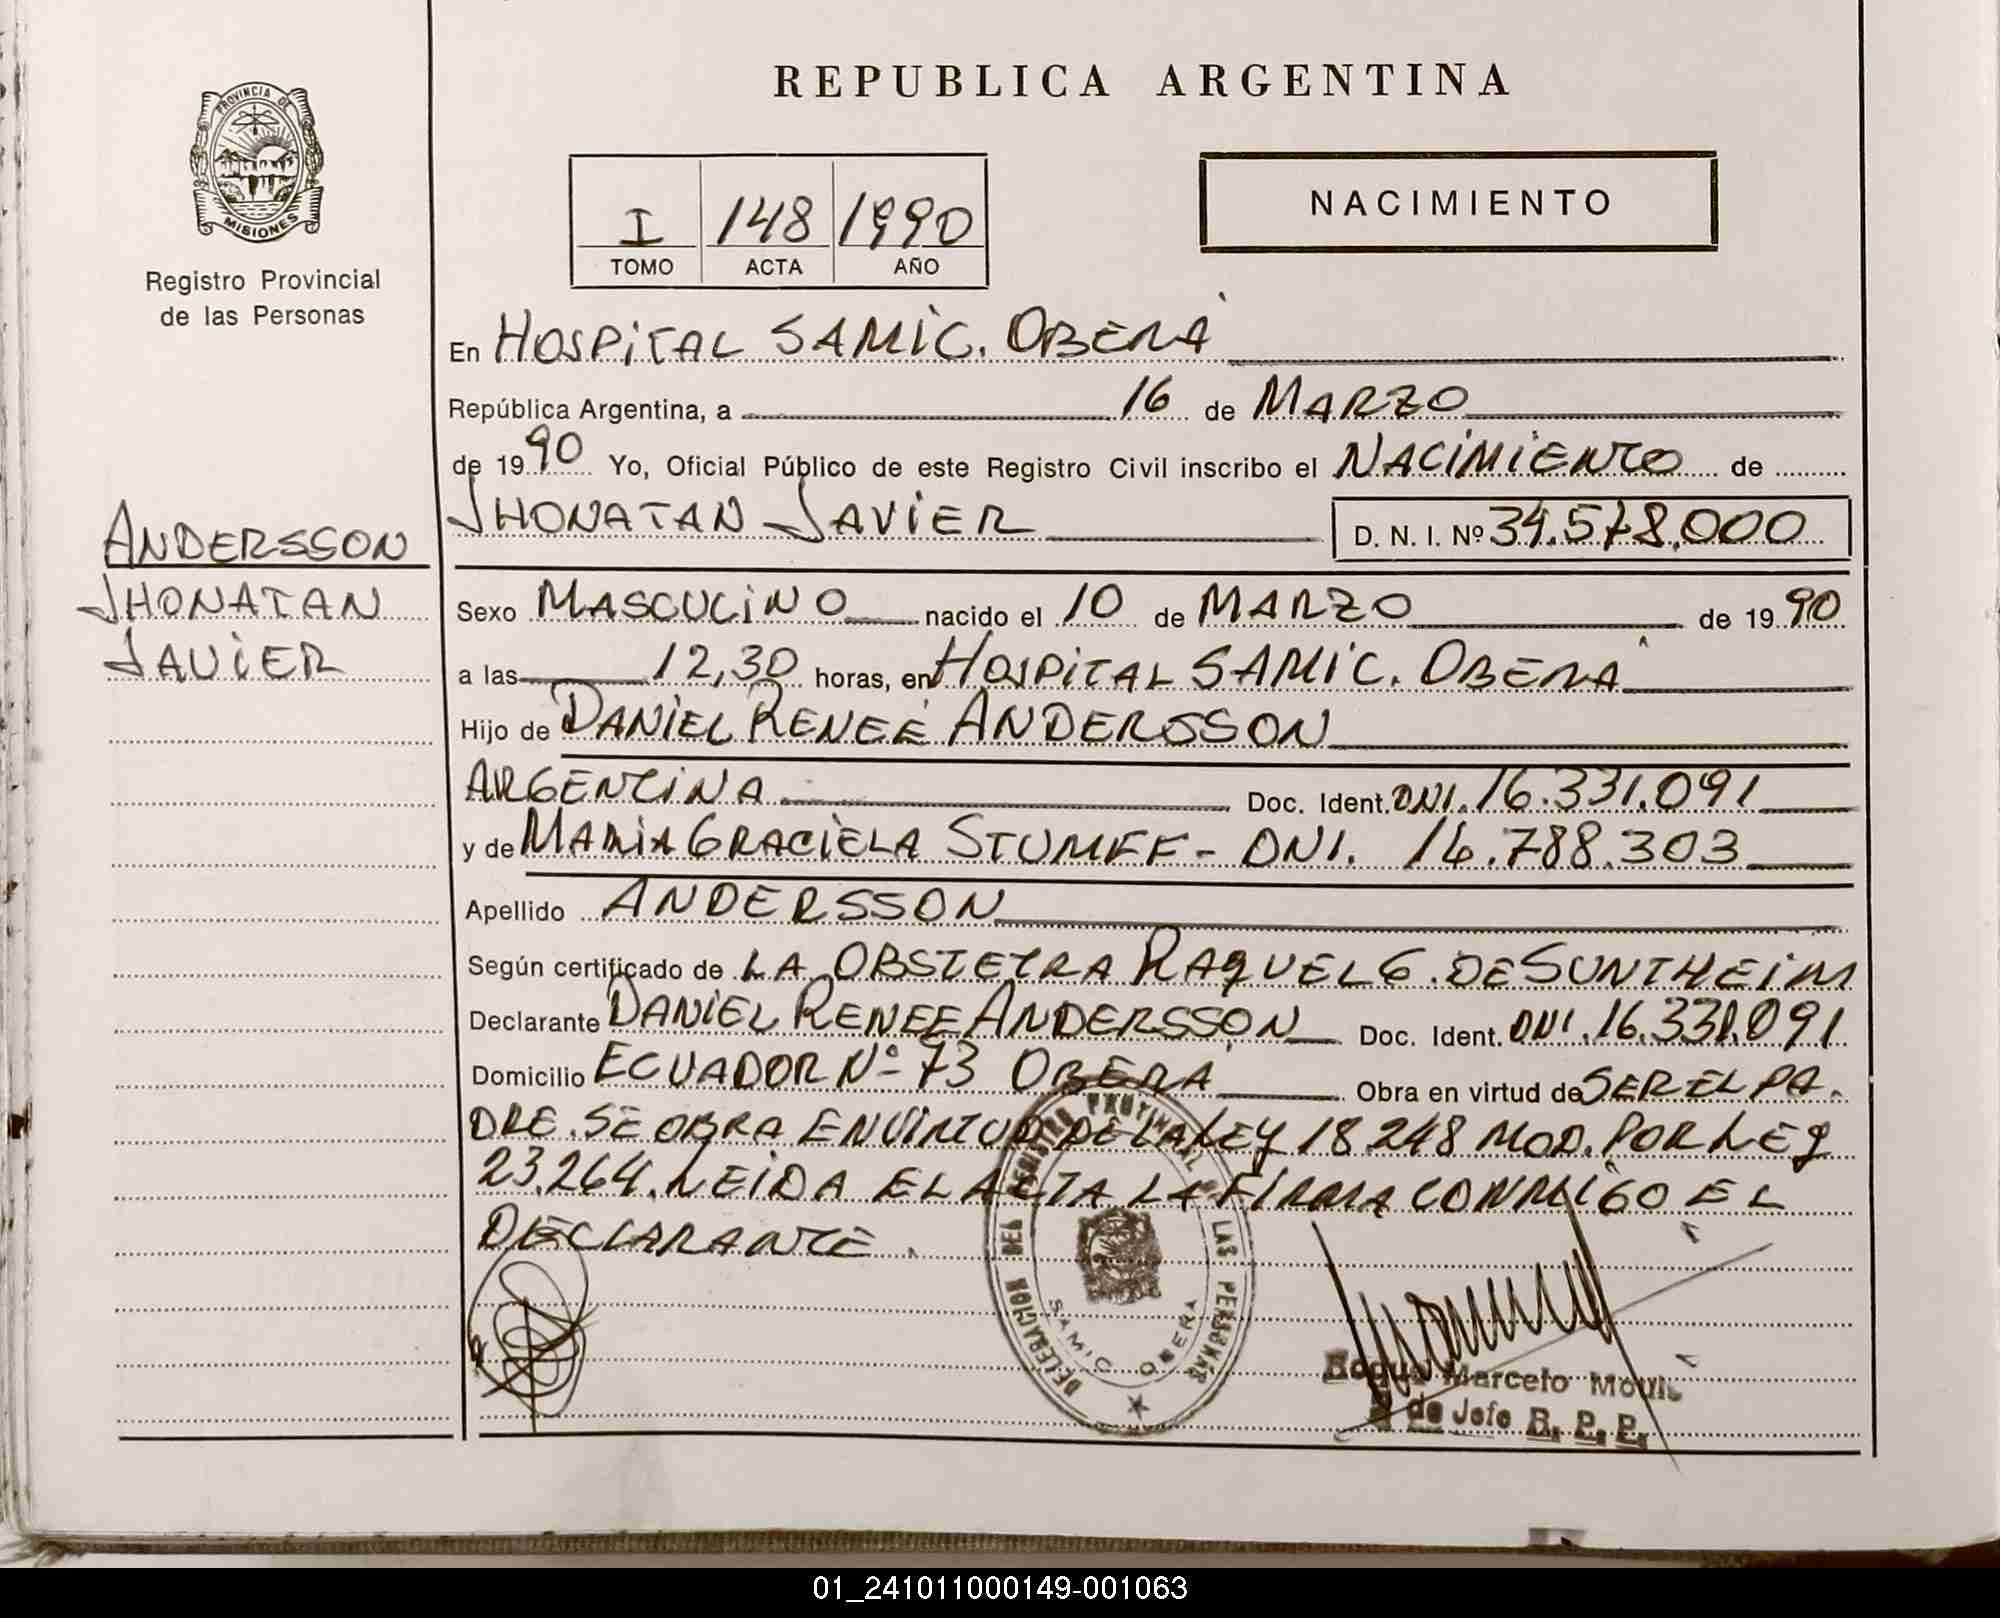 REPUBLICA ARGENTINA
PROVINCIA DE
MISIONES
Registro Provincial
de las Personas
NACIMIENTO
I 148 1990
TOMO ACTA AÑO
En HOSPITAL SAMIC. OBERÁ
República Argentina, a 16 de MARZO
de 1990 Yo, Oficial Público de este Registro Civil inscribo el NACIMIENTO de
JHONATAN JAVIER D. N. I. Nº 34.578.000
ANDERSSON
JHONATAN
JAVIER
Sexo MASCULINO nacido el 10 de MARZO de 1990
a las 12,30 horas, en HOSPITAL SAMIC. OBERÁ
Hijo de DANIEL RENEÉ ANDERSSON
ARGENTINA Doc. Ident. DNI. 16.331.091
y de MARIA GRACIELA STUMFF - DNI. 14.788.303
Apellido ANDERSSON
Según certificado de LA OBSTETRA RAQUEL G. DE SUNTHEIM
Declarante DANIEL RENEE ANDERSSON Doc. Ident. DNI. 16.331.091
Domicilio ECUADOR Nº 73 OBERÁ Obra en virtud de SER EL PA-
DRE. SE OBRA EN VIRTUD DE LA LEY 18248 MOD. POR LEY
23.264. LEIDA EL ACTA LA FIRMA CONMIGO EL
DECLARANTE.
DELEGACION DEL REGISTRO PROVINCIAL DE LAS PERSONAS
SAMIC OBERA
Roque Marcelo
de Jefe R. P. P.
01_241011000149-001063